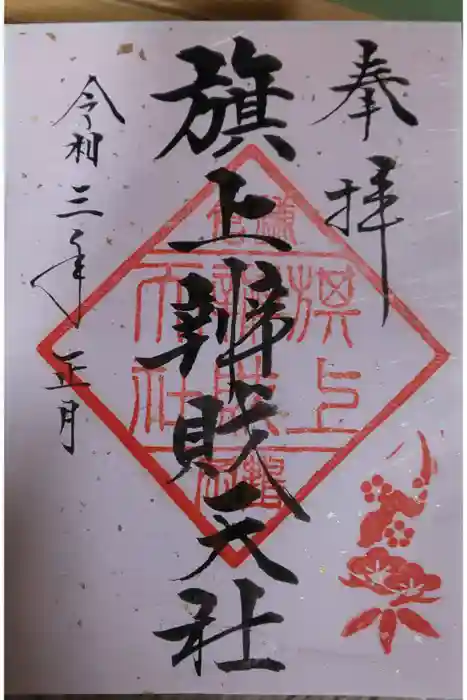 奉拝
旗上辨財天社
令和三年正月
鎌倉
旗上
辨財
天社